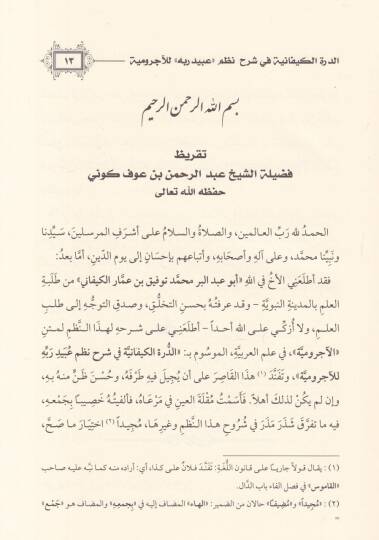 الدرة الكيفانية في شرح نظم «عبيدربه» للآجرومية
١٣
بسم الله الرحمن الرحيم
تقريظ
فضيلة الشيخ عبد الرحمن بن عوف كوني
حفظه الله تعالى
الحمدُ لله رَبِّ العـالمين، والصـلاةُ والسـلامُ علـى أشـرَفِ المرسلـينَ، سَـيِّدِنا
ونَبِيِّنا محمَّد، وعلى آلهِ وأصحَابِهِ، وأتباعهم بإحسَانٍ إلى يوم الدِّينِ، أمَّا بعدُ:
فقد أطلَعَنِي الأخُ في اللهِ «أبو عبد البر محمَّد توفيق بن عمَّار الكيفاني» من طَلَبَةِ
العلمِ بالمدينةِ النبويَّةِ – وقد عرفتُهُ بحسنِ التخلُّقِ، وصدقِ التوجُّهِ إلى طلبِ
العلمِ، ولا أُزكِّـي علـى الله أحـداً – أطلَعَنِـي علـى شـرحِهِ لهـذا النَّظمِ لمتـنِ
«الآجروميَّة»، في علمِ العربيَّةِ، الموسُوم بـ: «الدُّرة الكيفانيَّة في شرح نظم عُبَيدِ رَبِّهِ
للآجروميَّة»، وتَفَنَّدَ (١) هذا القَاصِرَ على أن يُجِيلَ فيهِ طَرْفَهُ، وحُسْنَ ظَنٍّ منهُ بهِ،
وإن لم يكُنْ لذلك أهلاً. فأَسَمْتُ مُقْلَةَ العينِ في مَرْعَاهُ، فألفيتُهُ خَصِيبـاً بِجَمْعِـهِ،
فيه ما تفرَّقَ شَذَرَ مَذَرَ في شُرُوحِ هـذا النَّظـمِ وغيرِهَـا، مُجِيـداً (٢) اختِيَـارَ ما صَـحَّ،
(١) : يقال قولاً جاريـاً على قانون اللُّغَةِ: تَفَنَّدَ فلانٌ علـى كـذا، أي: أراده منه كما نبَّه عليه صاحب
«القاموس» في فصل الفاء باب الدَّال.
(٢) : «مُجِيداً» و«مُضِيفاً» حالان من الضمير: «الهاء» المضاف إليه في «بِجمعِهِ» والمضاف هو «جَمْع»